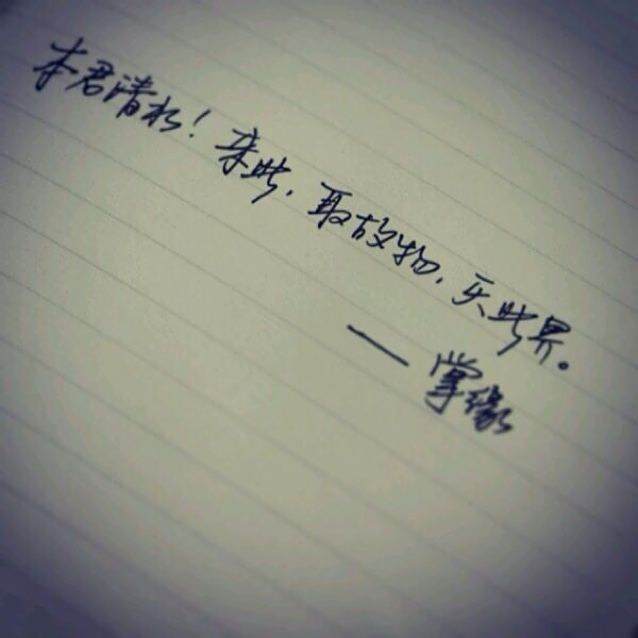 本君清水！来此，取故物，灭此界。
——掌缘